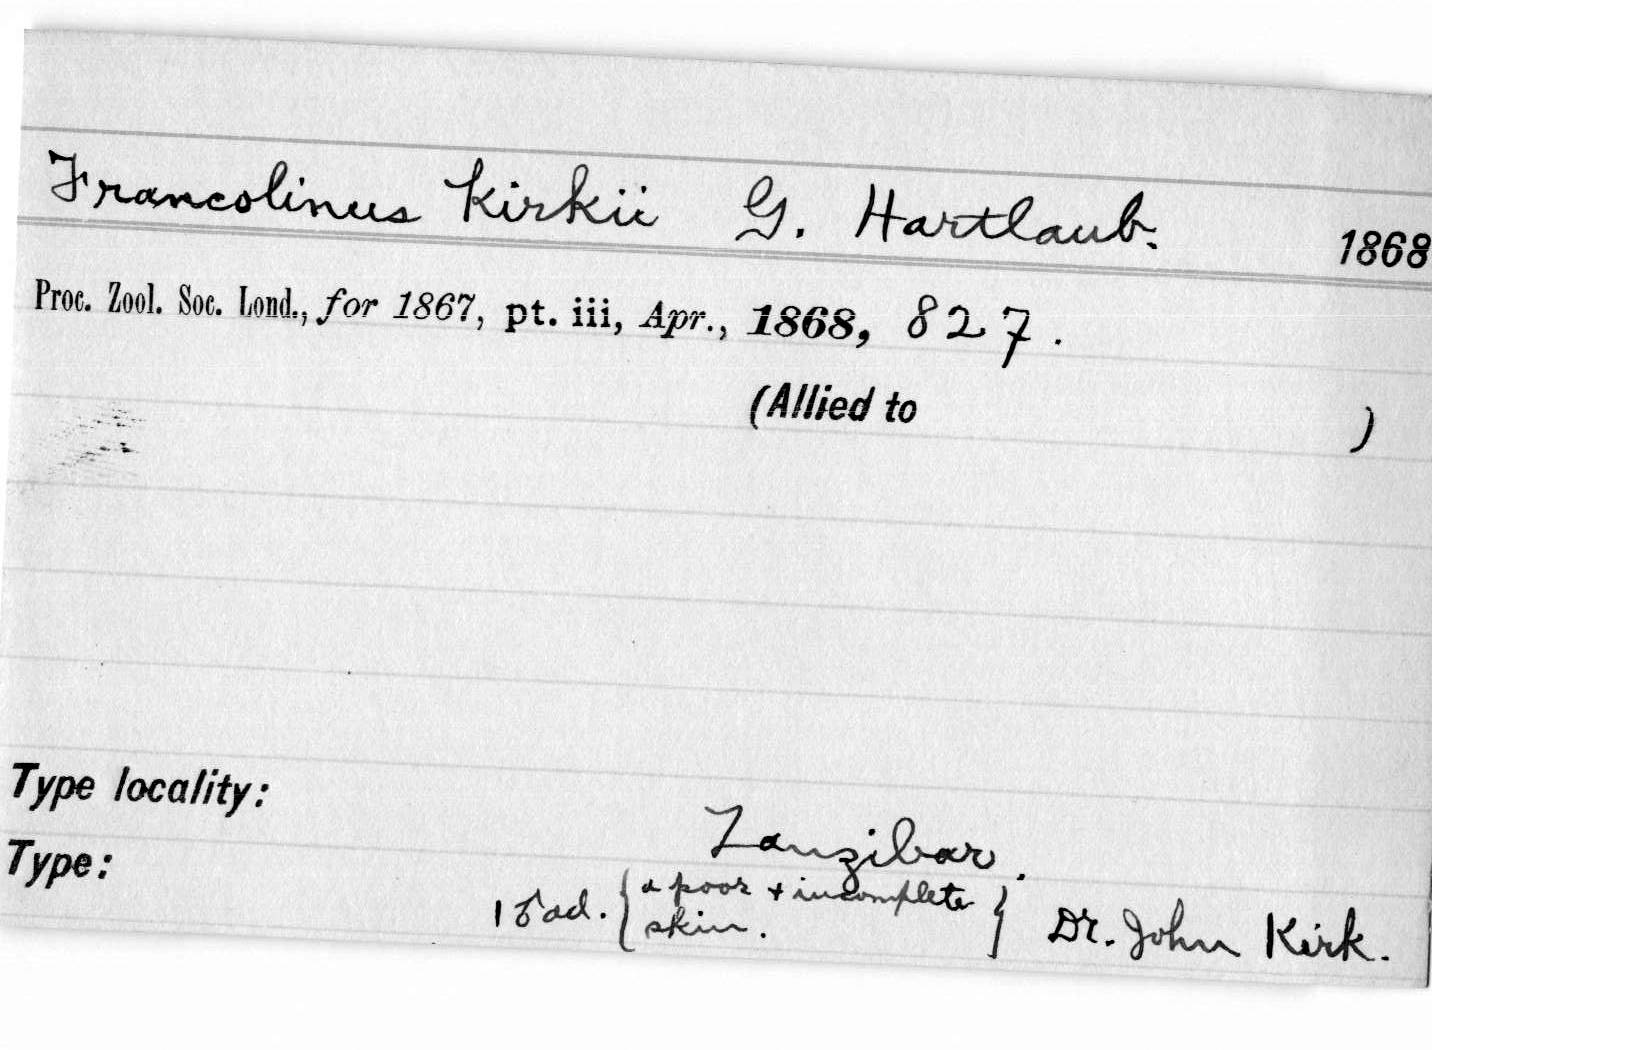 Francolinus Kirkii G. Hartlaub. 1868
Proc. Zool. Soc. Lond., for 1867, pt. iii, Apr., 1868, 827.
(Allied to )
Type locality:
Zanzibar.
Type:
1 ♂ ad. { a poor + incomplete
skin. } Dr. John Kirk.